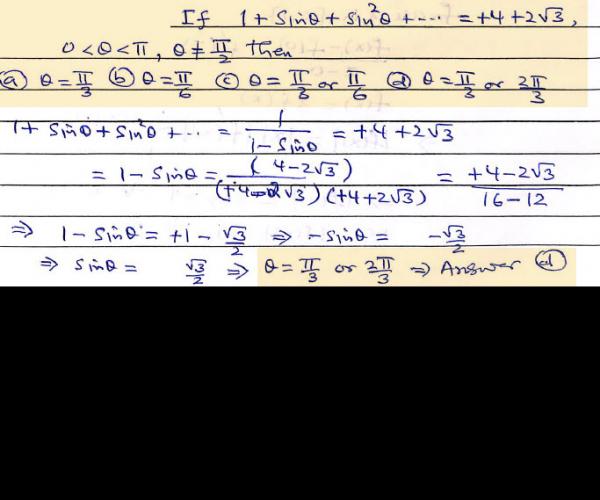 If 1 + Sinθ + Sin²θ + ---- = +4 + 2√3,
0 < θ < π, θ ≠ π/2 then
(a) θ = π/3 (b) θ = π/6 (c) θ = π/3 or π/6 (d) θ = π/3 or 2π/3
1 + Sinθ + Sin²θ + ·· = 1/(1 - Sinθ) = +4 + 2√3
= 1 - Sinθ = (4 - 2√3)/(+4 - 2√3)(+4 + 2√3) = +4 - 2√3/16 - 12
⇒ 1 - Sinθ = +1 - √3/2 ⇒ -Sinθ = -√3/2
⇒ Sinθ = √3/2 ⇒ θ = π/3 or 2π/3 ⇒ Answer (d)